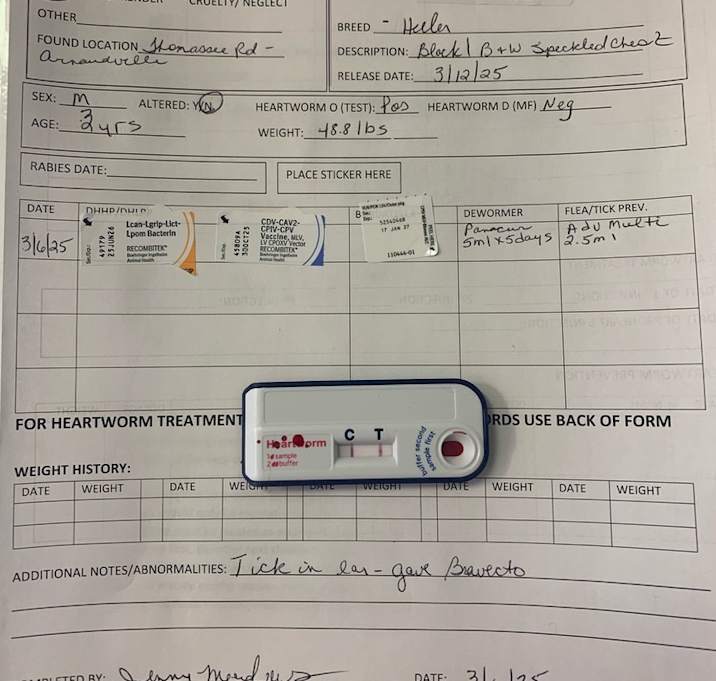 CRUELTY/ NEGLECT
OTHER
FOUND LOCATION Thomassee Rd -
Arnaudville
BREED - Heeler
DESCRIPTION: Black / B + W Speckled Chest
RELEASE DATE: 3/12/25
SEX: M ALTERED: Y/N HEARTWORM O (TEST): Pos HEARTWORM D (MF) Neg
AGE: 3 yrs WEIGHT: 48.8 lbs
RABIES DATE: PLACE STICKER HERE
DATE DHHP/DHLP B DEWORMER FLEA/TICK PREV.
3/6/25
Lcan-Lgrip-Lict-
Lpom Bacterin
RECOMBITEK
Boehringer Ingelheim
Animal Health
25JUN26
CDV-CAV2-
CPIV-CPV
Vaccine, MLV,
LV CPOXV Vector
RECOMBITEK
Boehringer Ingelheim
Animal Health
30OCT25
17 JAN 27
110444-01
Panacur
5ml x 5days
Adv Multi
2.5ml
FOR HEARTWORM TREATMENT RDS USE BACK OF FORM
Heartworm C T
1 sample
2 buffer
buffer second
sample first
WEIGHT HISTORY:
DATE WEIGHT DATE WEIGHT DATE WEIGHT DATE WEIGHT DATE WEIGHT
ADDITIONAL NOTES/ABNORMALITIES: Tick in ear - gave Bravecto
DATE: